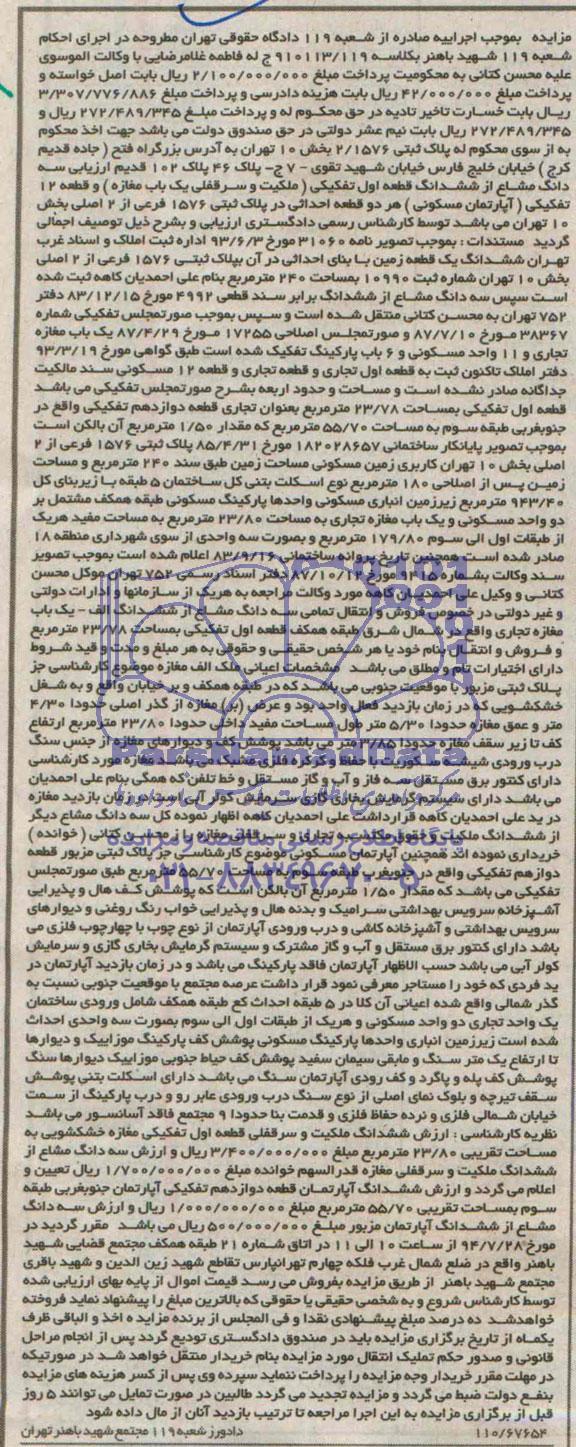 مزایده بموجب اجراییه صادره از شعبه ۱۱۹ دادگاه حقوقی تهران مطروحه در اجرای احکام
شعبه ۱۱۹ شهید باهنر بکلاسه ۹۱۰۱۱۳/۱۱۹ ج له فاطمه غلامرضایی با وکالت الموسوی
علیه محسن کتانی به محکومیت پرداخت مبلغ ۲/۱۰۰/۰۰۰/۰۰۰ ریال بابت اصل خواسته و
پرداخت مبلغ ۴۲/۰۰۰/۰۰۰ ریال بابت هزینه دادرسی و پرداخت مبلغ ۳/۳۰۷/۷۷۶/۸۸۶
ریال بابت خسارت تاخیر تادیه در حق محکوم له و پرداخت مبلغ ۲۷۲/۴۸۹/۳۴۵ ریال و
۲۷۲/۴۸۹/۳۴۵ ریال بابت نیم عشر دولتی در حق صندوق دولت می باشد جهت اخذ محکوم
به از سوی محکوم له پلاک ثبتی ۲/۱۵۷۶ بخش ۱۰ تهران به آدرس بزرگراه فتح ( جاده قدیم
کرج ) خیابان خلیج فارس خیابان شهید تقوی - ۷ ج- پلاک ۴۶ پلاک ۱۰۲ قدیم ارزیابی سه
دانگ مشاع از ششدانگ قطعه اول تفکیکی ( ملکیت و سرقفلی یک باب مغازه ) و قطعه ۱۲
تفکیکی ( آپارتمان مسکونی ) هر دو قطعه احداثی در پلاک ثبتی ۱۵۷۶ فرعی از ۲ اصلی بخش
۱۰ تهران می باشد توسط کارشناس رسمی دادگستری ارزیابی و بشرح ذیل توصیف اجمالی
گردید مستندات : بموجب تصویر نامه ۳۱۰۶۰ مورخ ۹۳/۶/۳ اداره ثبت املاک و اسناد غرب
تهران ششدانگ یک قطعه زمین با بنای احداثی در آن بپلاک ثبتی ۱۵۷۶ فرعی از ۲ اصلی
بخش ۱۰ تهران شماره ثبت ۱۰۹۹۰ بمساحت ۲۴۰ مترمربع بنام علی احمدیان کاهه ثبت شده
است سپس سه دانگ مشاع از ششدانگ برابر سند قطعی ۴۹۹۲ مورخ ۸۳/۱۲/۱۵ دفتر
۷۵۲ تهران به محسن کتانی منتقل شده است و سپس بموجب صورتمجلس تفکیکی شماره
۳۸۳۶۷ مورخ ۸۷/۷/۱۰ و صورتمجلس اصلاحی ۱۷۲۵۵ مورخ ۸۷/۴/۲۹ یک باب مغازه
تجاری و ۱۱ واحد مسکونی و ۶ باب پارکینگ تفکیک شده است طبق گواهی مورخ ۹۳/۳/۱۹
دفتر املاک تاکنون ثبت به قطعه اول تجاری و قطعه تجاری و قطعه ۱۲ مسکونی سند مالکیت
جداگانه صادر نشده است و مساحت و حدود اربعه بشرح صورتمجلس تفکیکی می باشد
قطعه اول تفکیکی بمساحت ۲۳/۷۸ مترمربع بعنوان تجاری قطعه دوازدهم تفکیکی واقع در
جنوبغربی طبقه سوم به مساحت ۵۵/۷۰ مترمربع که مقدار ۱/۵۰ مترمربع آن بالکن است
بموجب تصویر پایانکار ساختمانی ۱۸۲۰۲۸۶۵۷ مورخ ۸۵/۴/۳۱ پلاک ثبتی ۱۵۷۶ فرعی از ۲
اصلی بخش ۱۰ تهران کاربری زمین مسکونی مساحت زمین طبق سند ۲۴۰ مترمربع و مساحت
زمین پس از اصلاحی ۱۸۰ مترمربع نوع اسکلت بتنی کل ساختمان ۵ طبقه با زیربنای کل
۹۴۳/۴۰ مترمربع زیرزمین انباری مسکونی واحدها پارکینگ مسکونی طبقه همکف مشتمل بر
دو واحد مسکونی و یک باب مغازه تجاری به مساحت ۲۳/۸۰ مترمربع به مساحت مفید هریک
از طبقات اول الی سوم ۱۷۹/۸۰ مترمربع و بصورت سه واحدی از سوی شهرداری منطقه ۱۸
صادر شده است همچنین تاریخ پروانه ساختمانی ۸۳/۹/۱۶ اعلام شده است بموجب تصویر
سند وکالت بشماره ۹۴۱۵ مورخ ۸۷/۱۰/۱۲ دفتر اسناد رسمی ۷۵۲ تهران موکل محسن
کتانی و وکیل علی احمدیان کاهه مورد وکالت مراجعه به هریک از سازمانها و ادارات دولتی
و غیر دولتی در خصوص فروش و انتقال تمامی سه دانگ مشاع از ششدانگ الف - یک باب
مغازه تجاری واقع در شمال شرق طبقه همکف قطعه اول تفکیکی بمساحت ۲۳/۷۸ مترمربع
و فروش و انتقال بنام خود یا هر شخص حقیقی و حقوقی به هر مبلغ و مدت و قید شروط
دارای اختیارات تام و مطلق می باشد مشخصات اعیانی ملک الف مغازه موضوع کارشناسی جز
پلاک ثبتی مزبور با موقعیت جنوبی می باشد که در طبقه همکف و بر خیابان واقع و به شغل
خشکشویی که در زمان بازدید فعال واحد بود و عرض (بر) مغازه از گذر اصلی حدودا ۴/۳۰
متر و عمق مغازه حدودا ۵/۳۰ متر طول مساحت مفید داخلی حدودا ۲۳/۸۰ مترمربع ارتفاع
کف تا زیر سقف مغازه حدودا ۳/۸۵ متر می باشد پوشش کف و دیوارهای مغازه از جنس سنگ
درب ورودی شیشه سکوریت با حفاظ و کرکره فلزی مشبک می باشد مغازه مورد کارشناسی
دارای کنتور برق مستقل سه فاز و آب و گاز مستقل و خط تلفن که همگی بنام علی احمدیان
می باشد دارای سیستم گرمایش بخاری گازی سرمایش کولر آبی است در زمان بازدید مغازه
در ید علی احمدیان کاهه قرار داشت علی احمدیان کاهه اظهار نموده کل سه دانگ مشاع دیگر
از ششدانگ ملکیت و حقوق مکتسبه تجاری و سرقفلی مغازه را ز محسن کتانی ( خوانده )
خریداری نموده اند همچنین آپارتمان مسکونی موضوع کارشناسی جز پلاک ثبتی مزبور قطعه
دوازدهم تفکیکی واقع در جنوبغرب طبقه سوم به مساحت ۵۵/۷۰ مترمربع طبق صورتمجلس
تفکیکی می باشد که مقدار ۱/۵۰ مترمربع آن بالکن است که پوشش کف هال و پذیرایی
آشپزخانه سرویس بهداشتی سرامیک و بدنه هال و پذیرایی خواب رنگ روغنی و دیوارهای
سرویس بهداشتی و آشپزخانه کاشی و درب ورودی آپارتمان از نوع چوب با چهارچوب فلزی می
باشد دارای کنتور برق مستقل و آب و گاز مشترک و سیستم گرمایش بخاری گازی و سرمایش
کولر آبی می باشد حسب الاظهار آپارتمان فاقد پارکینگ می باشد و در زمان بازدید آپارتمان در
ید فردی که خود را مستاجر معرفی نمود قرار داشت عرصه مجتمع با موقعیت جنوبی نسبت به
گذر شمالی واقع شده اعیانی آن کلا در ۵ طبقه احداث کع طبقه همکف شامل ورودی ساختمان
یک واحد تجاری دو واحد مسکونی و هریک از طبقات اول الی سوم بصورت سه واحدی احداث
شده است زیرزمین انباری واحدها پارکینگ مسکونی پوشش کف پارکینگ موزاییک و دیوارها
تا ارتفاع یک متر سنگ و مابقی سیمان سفید پوشش کف حیاط جنوبی موزاییک دیوارها سنگ
پوشش کف پله و پاگرد و کف رودی آپارتمان سنگ می باشد دارای اسکلت بتنی پوشش
سقف تیرچه و بلوک نمای اصلی از نوع سنگ درب ورودی عابر رو و درب پارکینگ از سمت
خیابان شمالی فلزی و نرده حفاظ فلزی و قدمت بنا حدودا ۹ مجتمع فاقد آسانسور می باشد
نظریه کارشناسی : ارزش ششدانگ ملکیت و سرقفلی قطعه اول تفکیکی مغازه خشکشویی به
مساحت تقریبی ۲۳/۸۰ مترمربع مبلغ ۳/۴۰۰/۰۰۰/۰۰۰ ریال و ارزش سه دانگ مشاع از
ششدانگ ملکیت و سرقفلی مغازه قدرالسهم خوانده مبلغ ۱/۷۰۰/۰۰۰/۰۰۰ ریال تعیین و
اعلام می گردد و ارزش ششدانگ آپارتمان قطعه دوازدهم تفکیکی آپارتمان جنوبغربی طبقه
سوم بمساحت تقریبی ۵۵/۷۰ مترمربع مبلغ ۱/۰۰۰/۰۰۰/۰۰۰ ریال و ارزش سه دانگ
مشاع از ششدانگ آپارتمان مزبور مبلغ ۵۰۰/۰۰۰/۰۰۰ ریال می باشد مقرر گردید در
مورخ ۹۴/۷/۲۸ از ساعت ۱۰ الی ۱۱ در اتاق شماره ۲۱ طبقه همکف مجتمع قضایی شهید
باهنر واقع در ضلع شمال غرب فلکه چهارم تهرانپارس تقاطع شهید زین الدین و شهید باقری
مجتمع شهید باهنر از طریق مزایده بفروش می رسد قیمت اموال از پایه بهای ارزیابی شده
توسط کارشناس شروع و به شخصی حقیقی یا حقوقی که بالاترین مبلغ را پیشنهاد نماید فروخته
خواهدشد ده درصد مبلغ پیشنهادی نقدا و فی المجلس از برنده مزاید ه اخذ و الباقی ظرف
یکماه از تاریخ برگزاری مزایده باید در صندوق دادگستری تودیع گردد پس از انجام مراحل
قانونی و صدور حکم تملیک انتقال مورد مزایده بنام خریدار منتقل خواهد شد در صورتیکه
در مهلت مقرر خریدار وجه مزایده را پرداخت ننماید سپرده وی پس از کسر هزینه های مزایده
بنفع دولت ضبط می گردد و مزایده تجدید می گردد طالبین در صورت تمایل می توانند ۵ روز
قبل از برگزاری مزایده به این اجرا مراجعه تا ترتیب بازدید آنان از مال داده شود
۱۱۰/۶۷۶۵۴ دادورز شعبه ۱۱۹ مجتمع شهید باهنر تهران